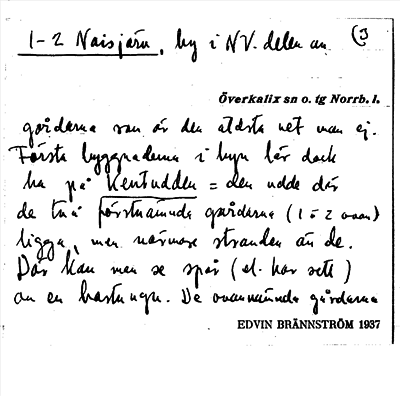 1-2 Naisjärv, by i NV. delen av (3
Överkalix sn o. tg Norrb. l.
gårdarna som är den äldsta vet man ej.
Första byggnaderna i byn lär dock
ha på Kentudden = den udde där
de två förstnämnda gårdarna (1 o 2 ovan)
ligga, men närmare stranden än de.
Där kan man se spår (el. har sett)
av en bastuugn. De ovannämnda gårdarna
EDVIN BRÄNNSTRÖM 1937